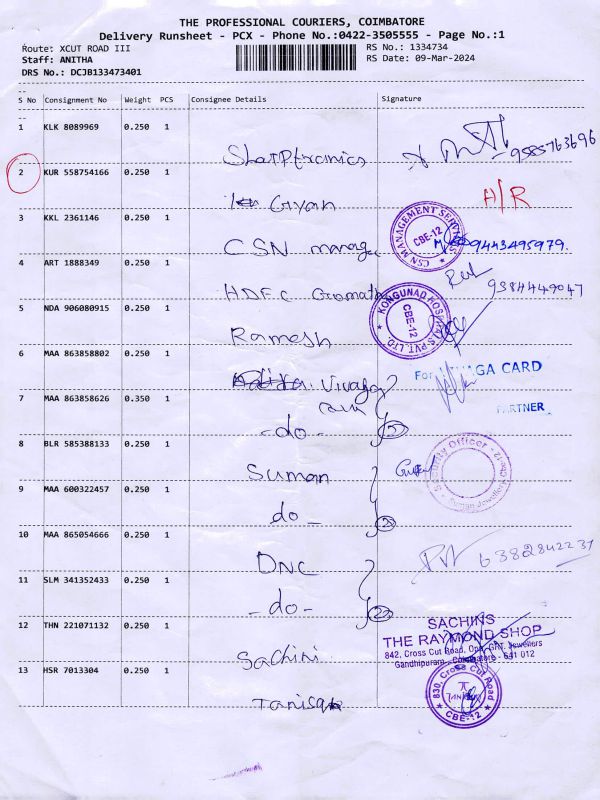 THE PROFESSIONAL COURIERS, COIMBATORE
Delivery Runsheet - PCX - Phone No.:0422-3505555 - Page No.:1
Route: XCUT ROAD III RS No.: 1334734
Staff: ANITHA RS Date: 09-Mar-2024
DRS No.: DCJB133473401
S No Consignment No Weight PCS Consignee Details Signature
1 KLK 8089969 0.250 1
Sharptronics 9585763696
2 KUR 558754166 0.250 1
Gyan A/R
3 KKL 2361146 0.250 1
CSN manage CSN MANAGEMENT SERVICES CBE-12 9443495979.
4 ART 1888349 0.250 1
HDFC 9384449047
5 NDA 906080915 0.250 1
Ramesh KONGUNAD HOSPITALS PVT. LTD. CBE-12
6 MAA 863858802 0.250 1
For GA CARD
7 MAA 863858626 0.350 1
PARTNER
- do -
8 BLR 585388133 0.250 1
Suman Security Officer
9 MAA 600322457 0.250 1
do -
10 MAA 865054666 0.250 1
DNC 6382842231
11 SLM 341352433 0.250 1
- do - 22
12 THN 221071132 0.250 1
SACHINS
THE RAYMOND SHOP
842, Cross Cut Road, Opp. GRT. Jewellers
Gandhipuram, Coimbatore - 641 012
Sachini
13 HSR 7013304 0.250 1
Tanisq 830, Cross Cut Road CBE-12